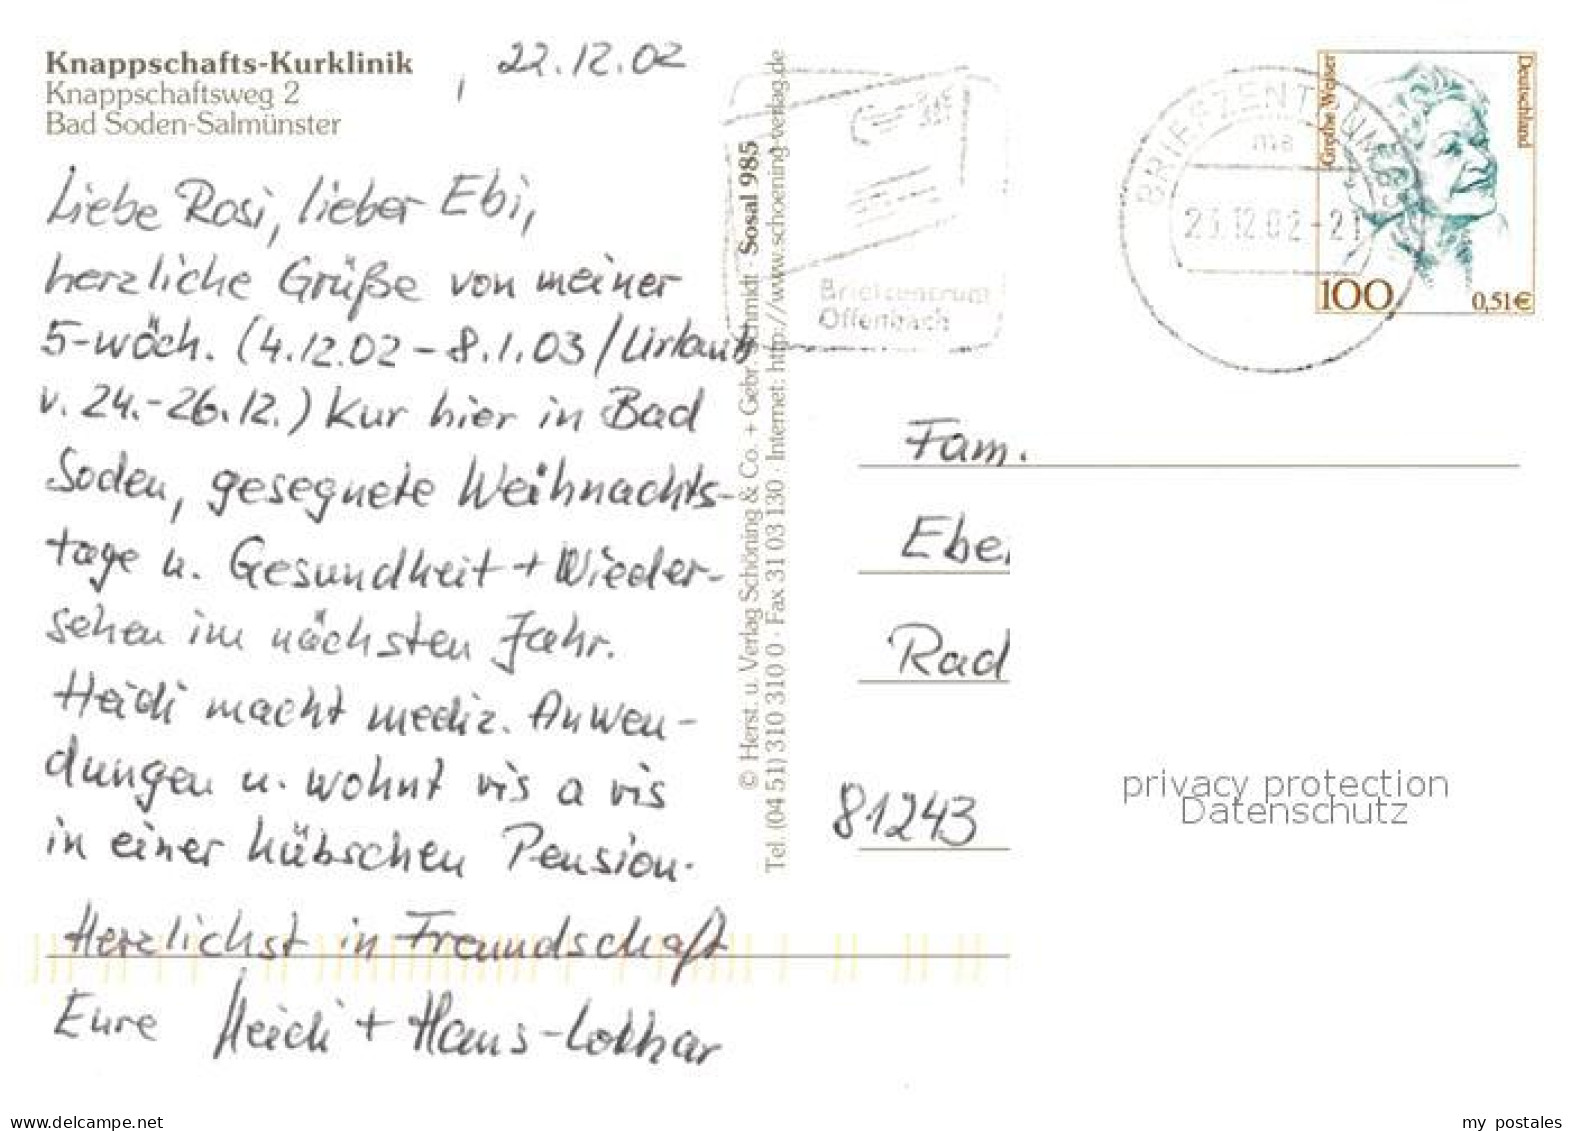 Knappschafts-Kurklinik
Knappschaftsweg 2
Bad Soden-Salmünster
, 22.12.02
Liebe Rosi, lieber Ebi,
herzliche Grüße von meiner
5-wöch. (4.12.02 - 8.1.03/Urlaub
v. 24.-26.12.) Kur hier in Bad
Soden, gesegnete Weihnachts-
tage u. Gesundheit + Wieder-
sehen im nächsten Jahr.
Heidi macht mediz. Anwen-
dungen u. wohnt vis a vis
in einer hübschen Pension.
Herzlichst in Freundschaft
Eure Heidi + Hans-Lothar
© Herst. u. Verlag Schöning & Co. + Gebr. Schmidt · Sosal 985
Tel. (04 51) 310 310 0 · Fax 31 03 130 · Internet: http://www.schoening-verlag.de
Briefzentrum
Offenbach
BRIEFZENTRUM 63
ma
12.02-21
Grethe Weiser
Deutschland
100
0,51€
Fam.
Ebe
Rad
81243
privacy protection
Datenschutz
www.delcampe.net
my_postales